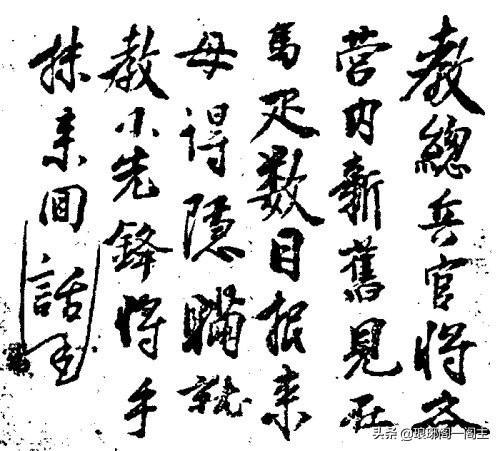 教總兵官將各
营内新舊見在
馬疋数目报来
毋得隱瞞就
教小先鋒將手
抹来回話
头条 @琅琊阁一阁主